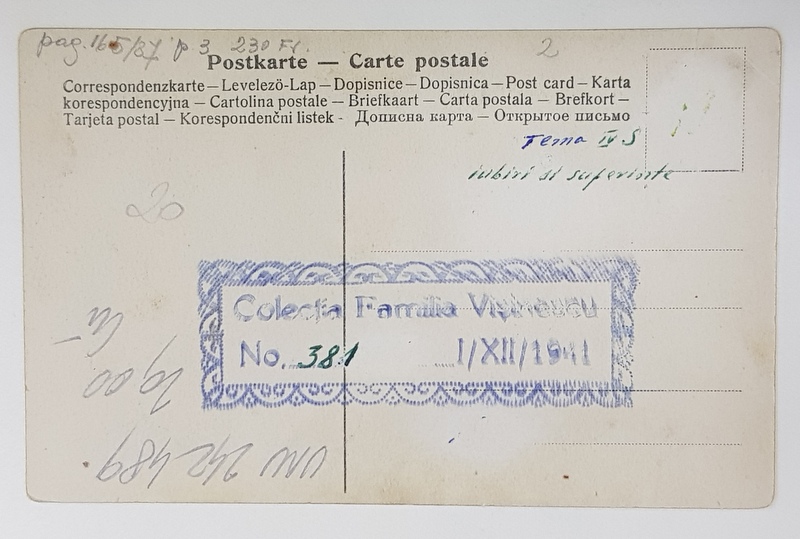 pag. 165/87 p. 3 230 Fr. 2
Postkarte — Carte postale
Correspondenzkarte — Levelezö-Lap — Dopisnice — Dopisnica — Post card — Karta
korespondencyjna — Cartolina postale — Briefkaart — Carta postala — Brefkort —
Tarjeta postal — Korespondenčni listek - Дописна карта — Открытое письмо
Tema IV S
iubiri si suferinte
20
Colecția Familia
No. 381 I/XII/1941
1900
242489